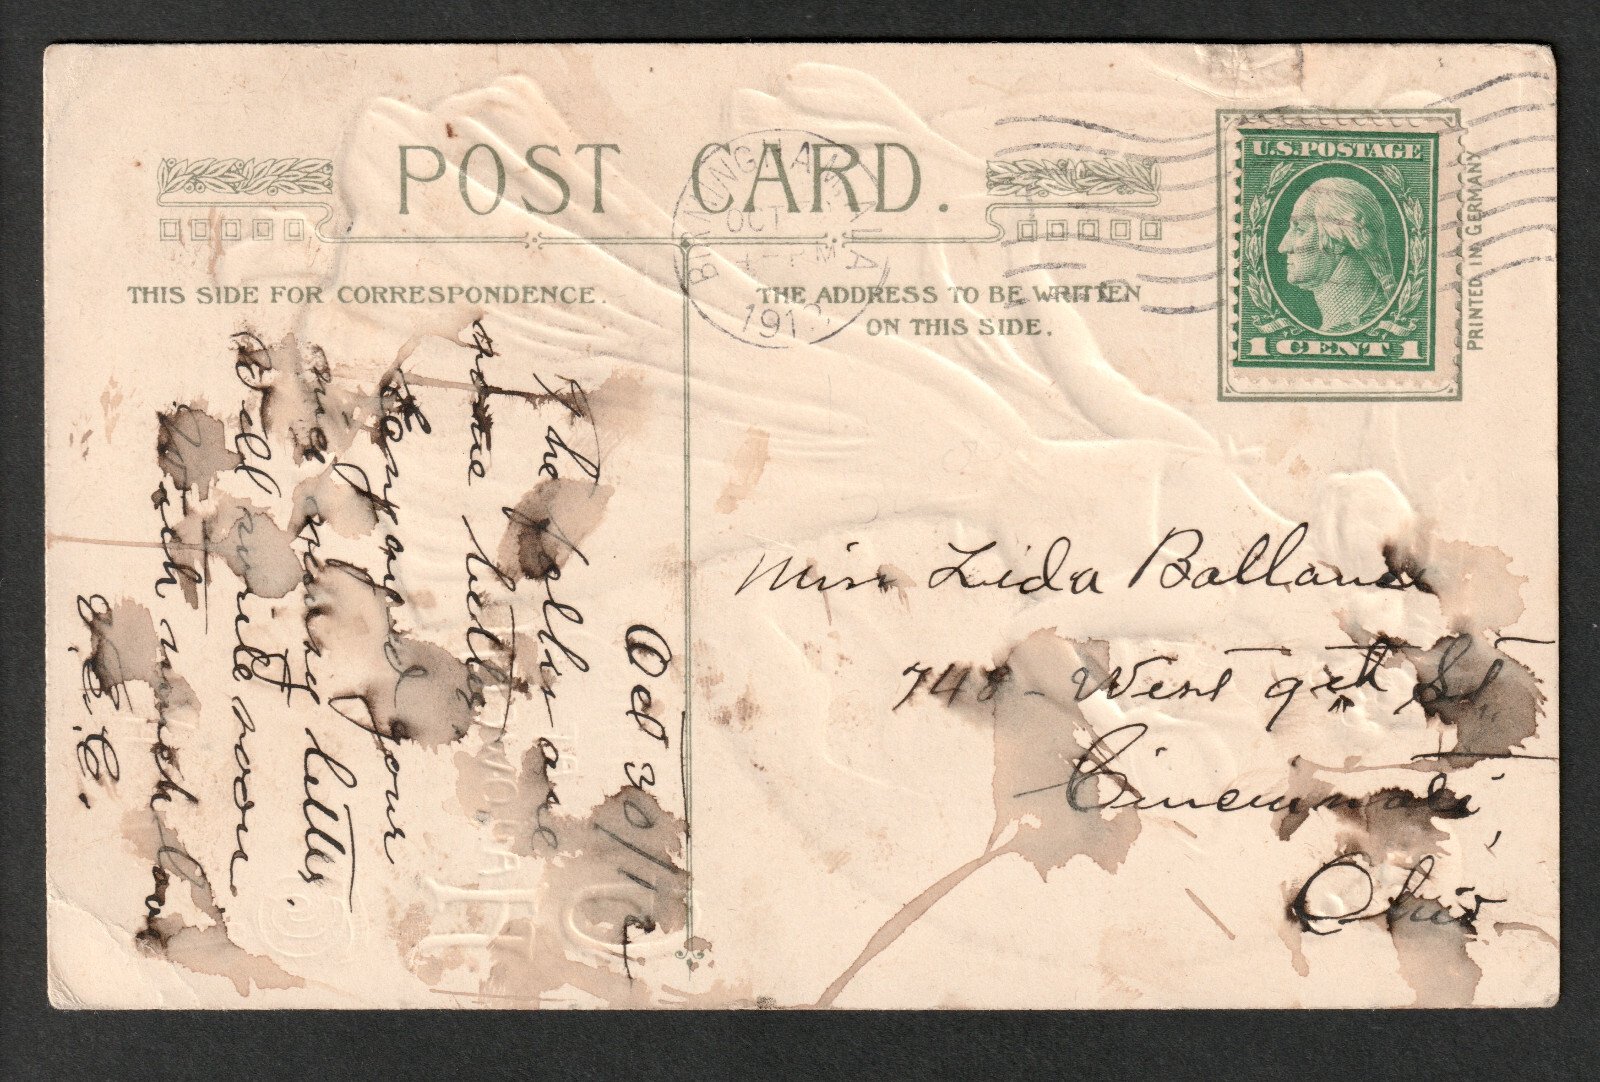 POST CARD.
THIS SIDE FOR CORRESPONDENCE.
THE ADDRESS TO BE WRITTEN
ON THIS SIDE.
BIRMINGHAM ALA
OCT
PM
191
U.S. POSTAGE
1 CENT 1
PRINTED IN GERMANY
Oct 30/12
The folks are
some better
Enjoyed your
nice newsy letter.
Will write soon
With much love
E. C.
Miss Lida Ballance
748 - West 9th St
Cincinnati,
Ohio